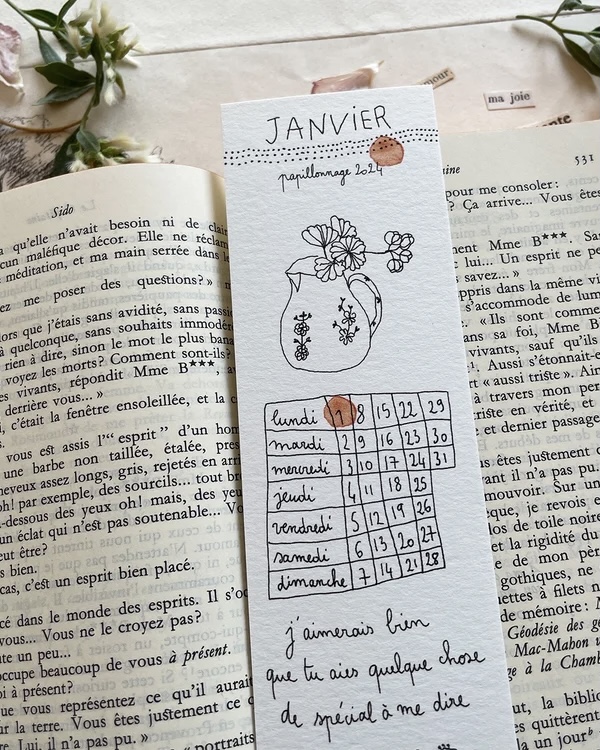 ma joie
JANVIER
papillonnage 2024
lundi 1 8 15 22 29
mardi 2 9 16 23 30
mercredi 3 10 17 24 31
jeudi 4 11 18 25
vendredi 5 12 19 26
samedi 6 13 20 27
dimanche 7 14 21 28
j'aimerais bien
que tu aies quelque chose
de spécial à me dire
Sido
qu'elle n'avait besoin ni de
maléfique décor. Elle ne
méditation, et ma main serrée dans
me poser des questions? »
que j'étais sans avidité, sans
quelconque, sans souhaits
rien à dire, sinon le mot le plus
voyez les morts? Comment sont-ils?
vivants, répondit Mme B***,
derrière vous... »
c'était la fenêtre ensoleillée, et la
vous est assis l'“ esprit ” d'un
une barbe non taillée, étalée,
assez longs, gris, rejetés en
oh! par exemple, des sourcils... tout
-dessous des yeux oh! mais, des
un éclat qui n'est pas soutenable...
être?
bien.
cas, c'est un esprit bien placé.
placé dans le monde des esprits. Il
vous... Vous ne le croyez pas?
un peu...
occupe beaucoup de vous à présent.
à présent?
que vous représentez ce qu'il
sur la terre. Vous êtes justement
Lui, il n'a pas pu. »
“ portraits
531
pour me consoler:
? Ça arrive... Vous
Mme B***.
lui... Un esprit ne
savez... »
appris dans la même
s'accommode de
« Ils sont comme
sa foi, Mme B
vivants, sauf qu'ils
Aussi s'étonnait-
« aussi triste ».
à travers mon
en vérité, et
et dernier passage
avant il n'a pas pu.
mouvoir. Sur un
que, je revois
de toile noire
et la rigidité du
de mon
gothiques, ne
à filets
de mémoire:
Géodésie des
Mac-Mahon
à la Chamb
la
quittèrent
un jour